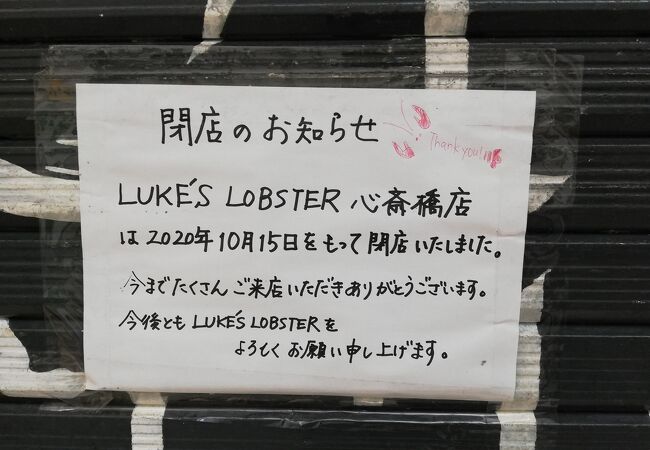 閉店のお知らせ
Thank you!!
LUKE'S LOBSTER 心斎橋店
は2020年10月15日をもって閉店いたしました。
今までたくさんご来店いただきありがとうございます。
今後とも LUKE'S LOBSTERを
よろしくお願い申し上げます。